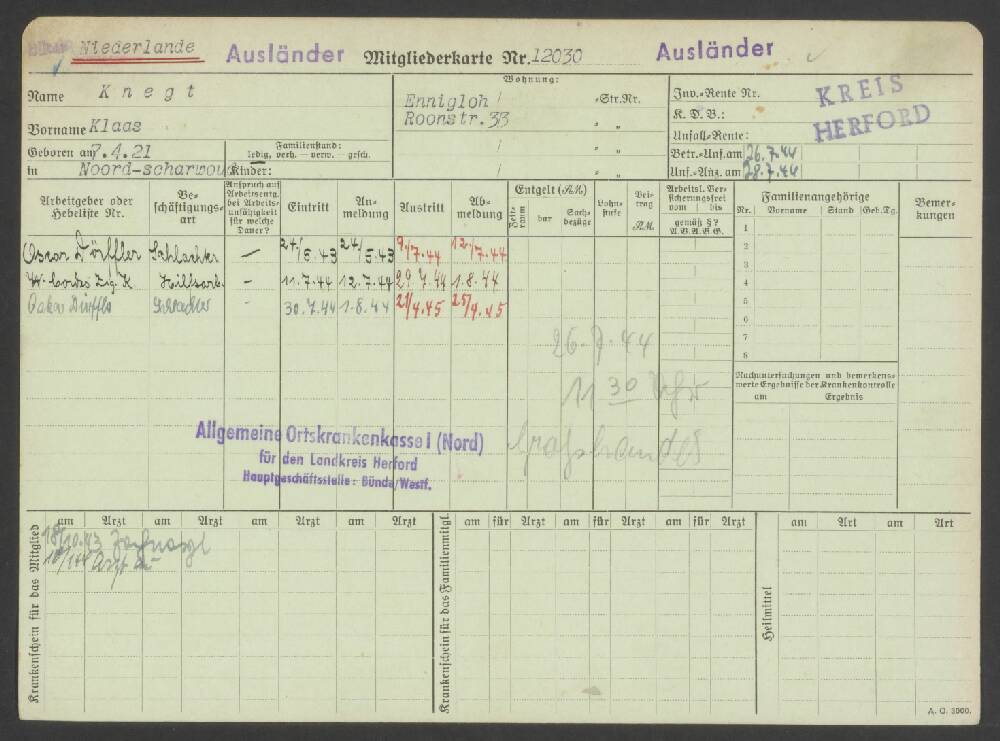 Niederlande Ausländer Mitgliederkarte Nr. 12030 Ausländer
Name Knegt
Vorname Klaas
Geboren am 7.4.21
in Noord-scharwoud
Familienstand:
ledig, verh. — verw. — gesch.
Kinder:
Wohnung:
Ennigloh Str.Nr.
Roonstr. 33 " "
" "
Inv.-Rente Nr.
K. D. B.:
Unfall-Rente:
Betr.-Unf. am 26.7.44
Unf.-Anz. am 28.7.44
KREIS
HERFORD
Arbeitgeber oder Hebeliste Nr.
Beschäftigungsart
Anspruch auf Arbeitsentg. bei Arbeitsunfähigkeit für welche Dauer?
Eintritt
Anmeldung
Austritt
Abmeldung
Entgelt (RM)
Zeitraum
bar
Sachbezüge
Lohnstufe
Beitrag RM.
Arbeitsl. Versicherungsfrei
vom bis
gemäß §?
A.V.A.V.G.
Familienangehörige
Nr. Vorname Stand Geb.Tg.
1
2
3
4
5
6
7
8
Bemerkungen
Oscar Dörffler Schlachter — 24/5.43 24/5.43 9./7.44 12./7.44
Zig. K. Hilfsarb. — 11.7.44 12.7.44 29.7.44 1.8.44
30.7.44 1.8.44 21/4.45 25/4.45
26.7.44
11 30 Uhr
Nachuntersuchungen und bemerkenswerte Ergebnisse der Krankenkontrolle
am Ergebnis
Allgemeine Ortskrankenkasse I (Nord)
für den Landkreis Herford
Hauptgeschäftsstelle: Bünde/Westf.
Krankenschein für das Mitglied
am Arzt am Arzt am Arzt am Arzt
18/10.43 Zahnarzt
Arzt
Krankenschein für das Familienmitgl.
am für Arzt am für Arzt am für Arzt
Heilmittel
am Art am Art
A. O. 3000.